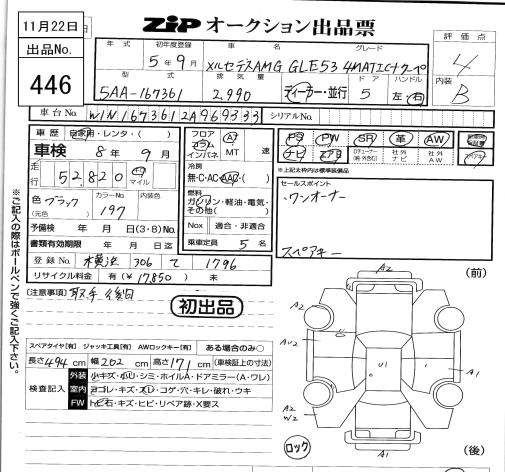 11月22日
出品No.
446
ZIP オークション出品票
年式 初年度登録 車名 グレード
5年9月 メルセデスAMG GLE53 4MATIC+クーペ
型式 排気量 ドア ハンドル
5AA-167361 2,990 ディーラー・並行 5 左・右
評価点
4
内装
B
車台No. W1N1673612A969333 シリアルNo.
車歴 自家用・レンタ・( )
車検 8年9月
走行 52,820 km マイル
色 ブラック (元色) カラーNo. 197 内装色
予備検 年 月 日(3・8)No.
書類有効期限 年 月 日迄
登録No. 横浜 306 て 1796
リサイクル料金 有(¥17,850) 未
フロア コラム インパネ A7 MT 速
冷房
無・C・AC・AAC・( )
燃料
ガソリン・軽油・電気・その他( )
Nox 適合・非適合
乗車定員 5 名
PS PW SR 革 AW
ナビ エアB 社外ナビ 社外AW
スペアキー
※上記太枠内は標準装備品
セールスポイント
ワンオーナー
スペアキー
(注意事項) 取手後日
初出品
スペアタイヤ[有] ジャッキ工具[有] AWロックキー[有] ある場合のみ○
長さ494cm 幅202cm 高さ171cm (車検証上の寸法)
検査記入
外装 小キズ・小ヘコ・シミ・ホイルA・ドアミラー(A・ワレ)
室内 ヨゴレ・キズ・スレ・コゲ・穴・キレ・破れ・ウキ
FW トビ石・キズ・ヒビ・リペア跡・X要ス
※ご記入の際はボールペンで強くご記入下さい。
(前)
A2
A2
AU2
U1
A1
A2
W2
A2
A1
ロック
(後)